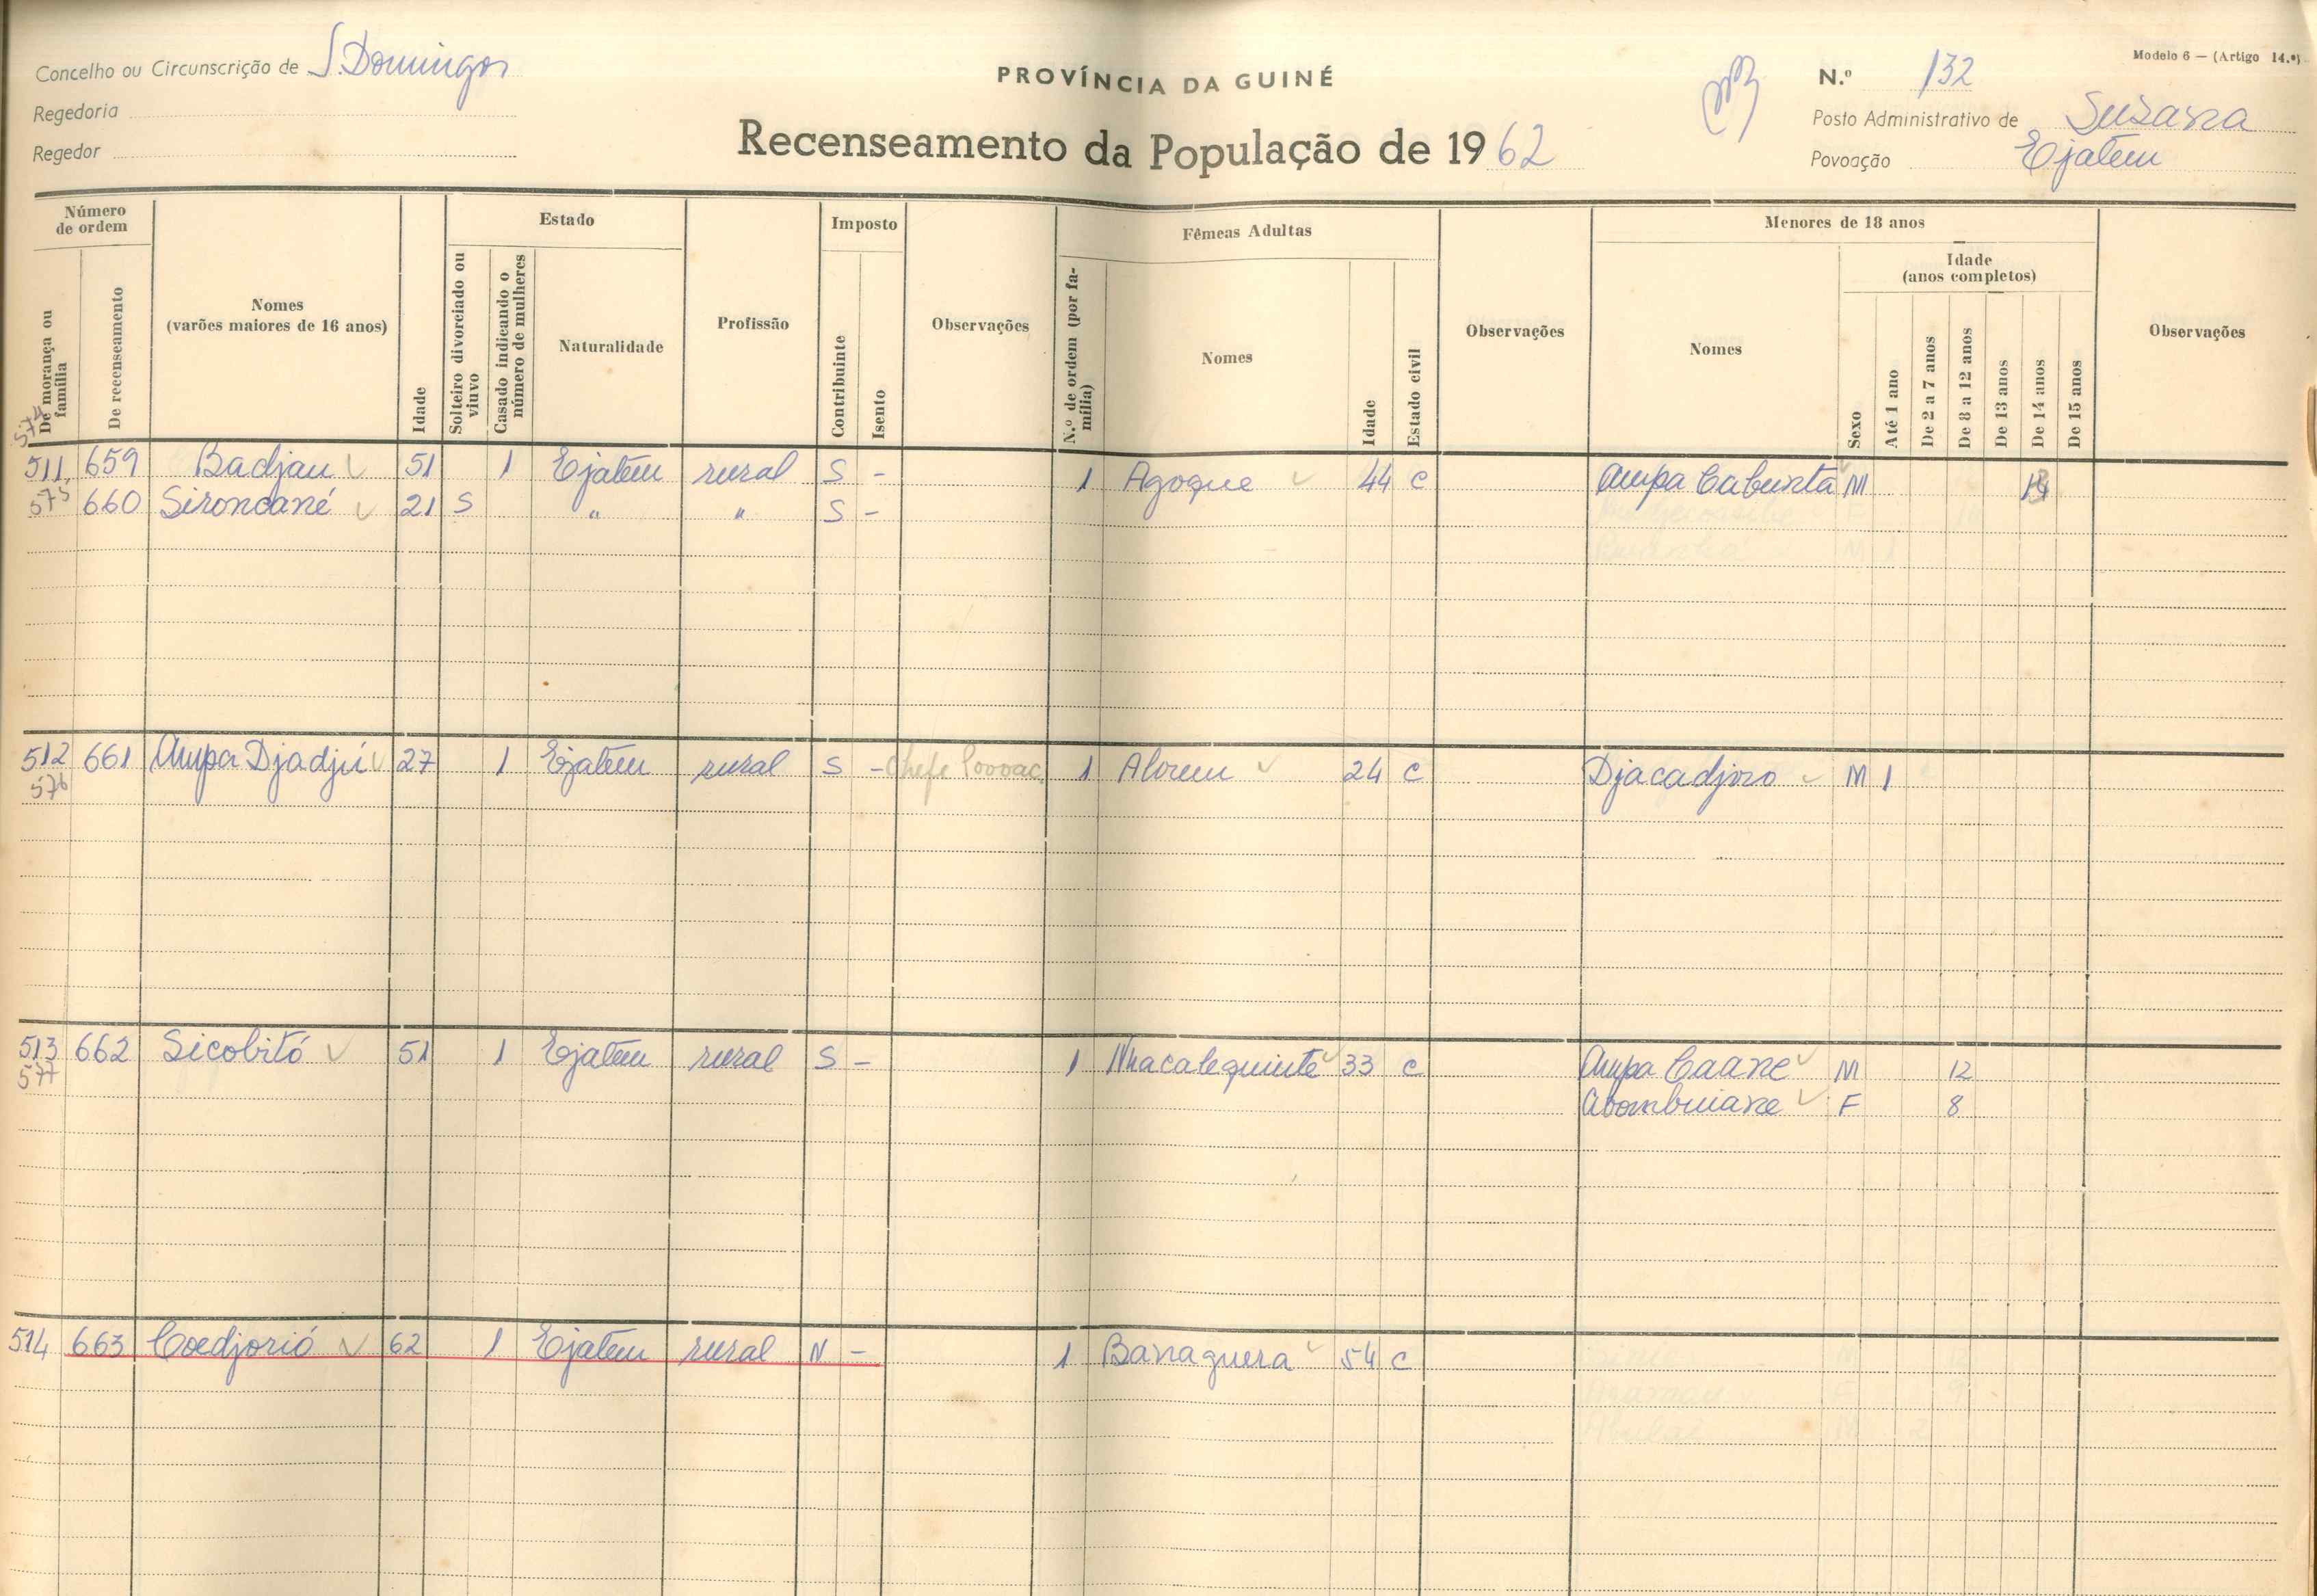 Modelo 6 — (Artigo 14.º)
Concelho ou Circunscrição de S. Domingos
PROVÍNCIA DA GUINÉ
N.º 132
Regedoria
Posto Administrativo de Susana
Regedor
Recenseamento da População de 1962
Povoação Ejatem
Número de ordem
Estado
Imposto
Fêmeas Adultas
Menores de 18 anos
De morança ou família
De recenseamento
Nomes (varões maiores de 16 anos)
Idade
Solteiro divorciado ou viuvo
Casado indicando o número de mulheres
Naturalidade
Profissão
Contribuinte
Isento
Observações
N.º de ordem (por família)
Nomes
Idade
Estado civil
Observações
Nomes
Sexo
Idade (anos completos)
Até 1 ano
De 2 a 7 anos
De 8 a 12 anos
De 13 anos
De 14 anos
De 15 anos
Observações
574
511 659 Badjau 51 1 Ejatem rural S - 1 Agoque 44 C Ampa Cabunta M 14
575 660 Sironcané 21 S " " S -
512 661 Ampa Djadjú 27 1 Ejatem rural S - Chefe Povoac. 1 Alorem 24 C Djacadjoro M 1
576
513 662 Sicobitó 51 1 Ejatem rural S - 1 Nhacalequinte 33 C Ampa Caane M 12
577 Abombuiane F 8
514 663 Coedjorió 62 1 Ejatem rural N - 1 Banaguera 54 C